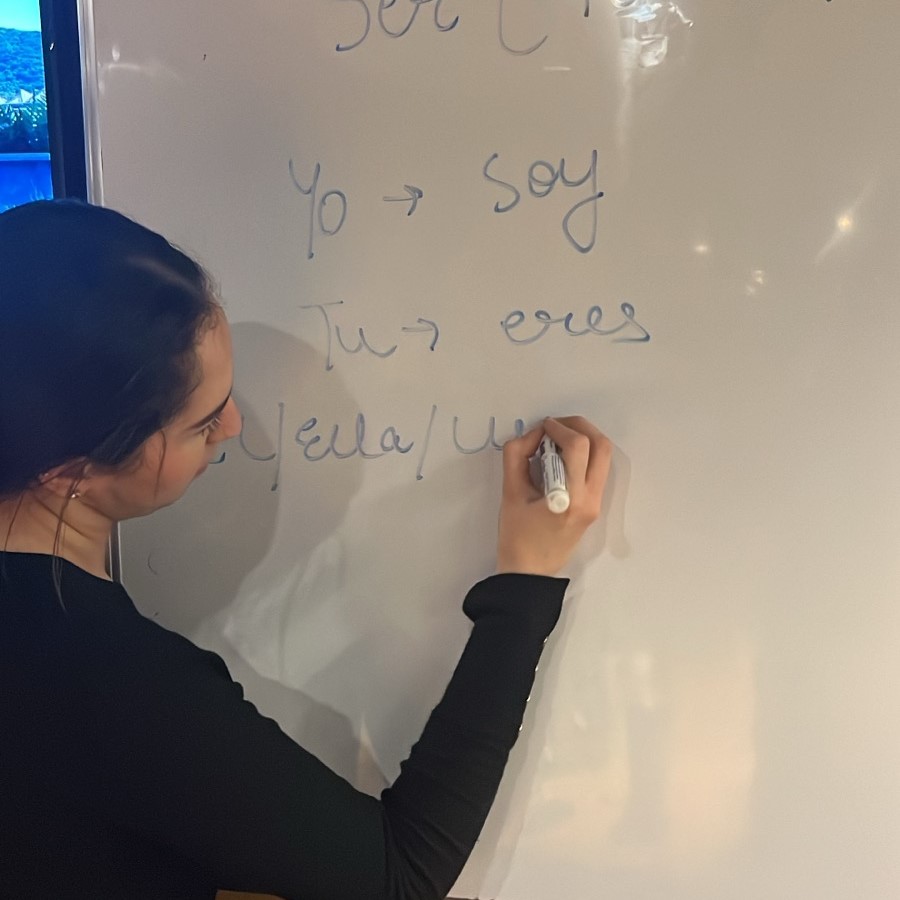 Ser (
Yo → soy
Tu → eres
/Ella/